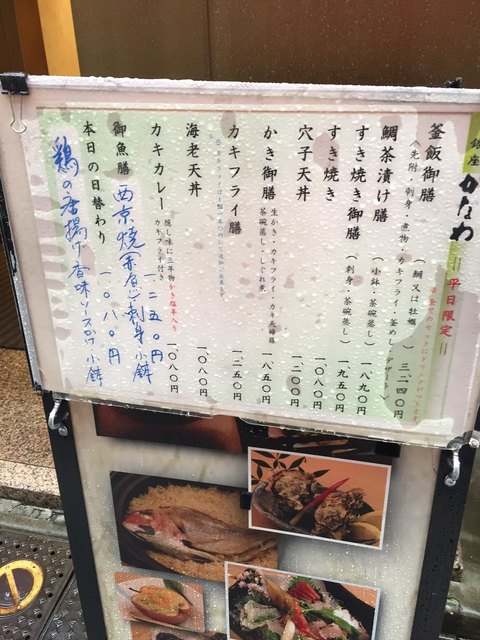 銀座 かなわ
‖平日限定‖
釜飯御膳 (鯛又は牡蠣) 三、二四〇円
〈先附・刺身・煮物・カキフライ・釜めし・デザート〉
鯛茶漬け膳 (小鉢・茶碗蒸し) 一、八九〇円
すき焼き御膳 (刺身・茶碗蒸し) 一、九五〇円
すき焼き 一、〇八〇円
穴子天丼 一、二〇〇円
かき御膳 生かき・カキフライ・カキ天婦羅 茶碗蒸し・しぐれ煮 一、八五〇円
カキフライ膳 一、二五〇円
海老天丼 一、〇八〇円
カキカレー 隠し味に三年物かき塩辛入り カキフライ付き 一、〇八〇円
御魚膳 西京焼 刺身 小鉢 一、二五〇円
本日の日替わり 一、〇八〇円
鶏の唐揚げ 香味ソースかけ 小鉢